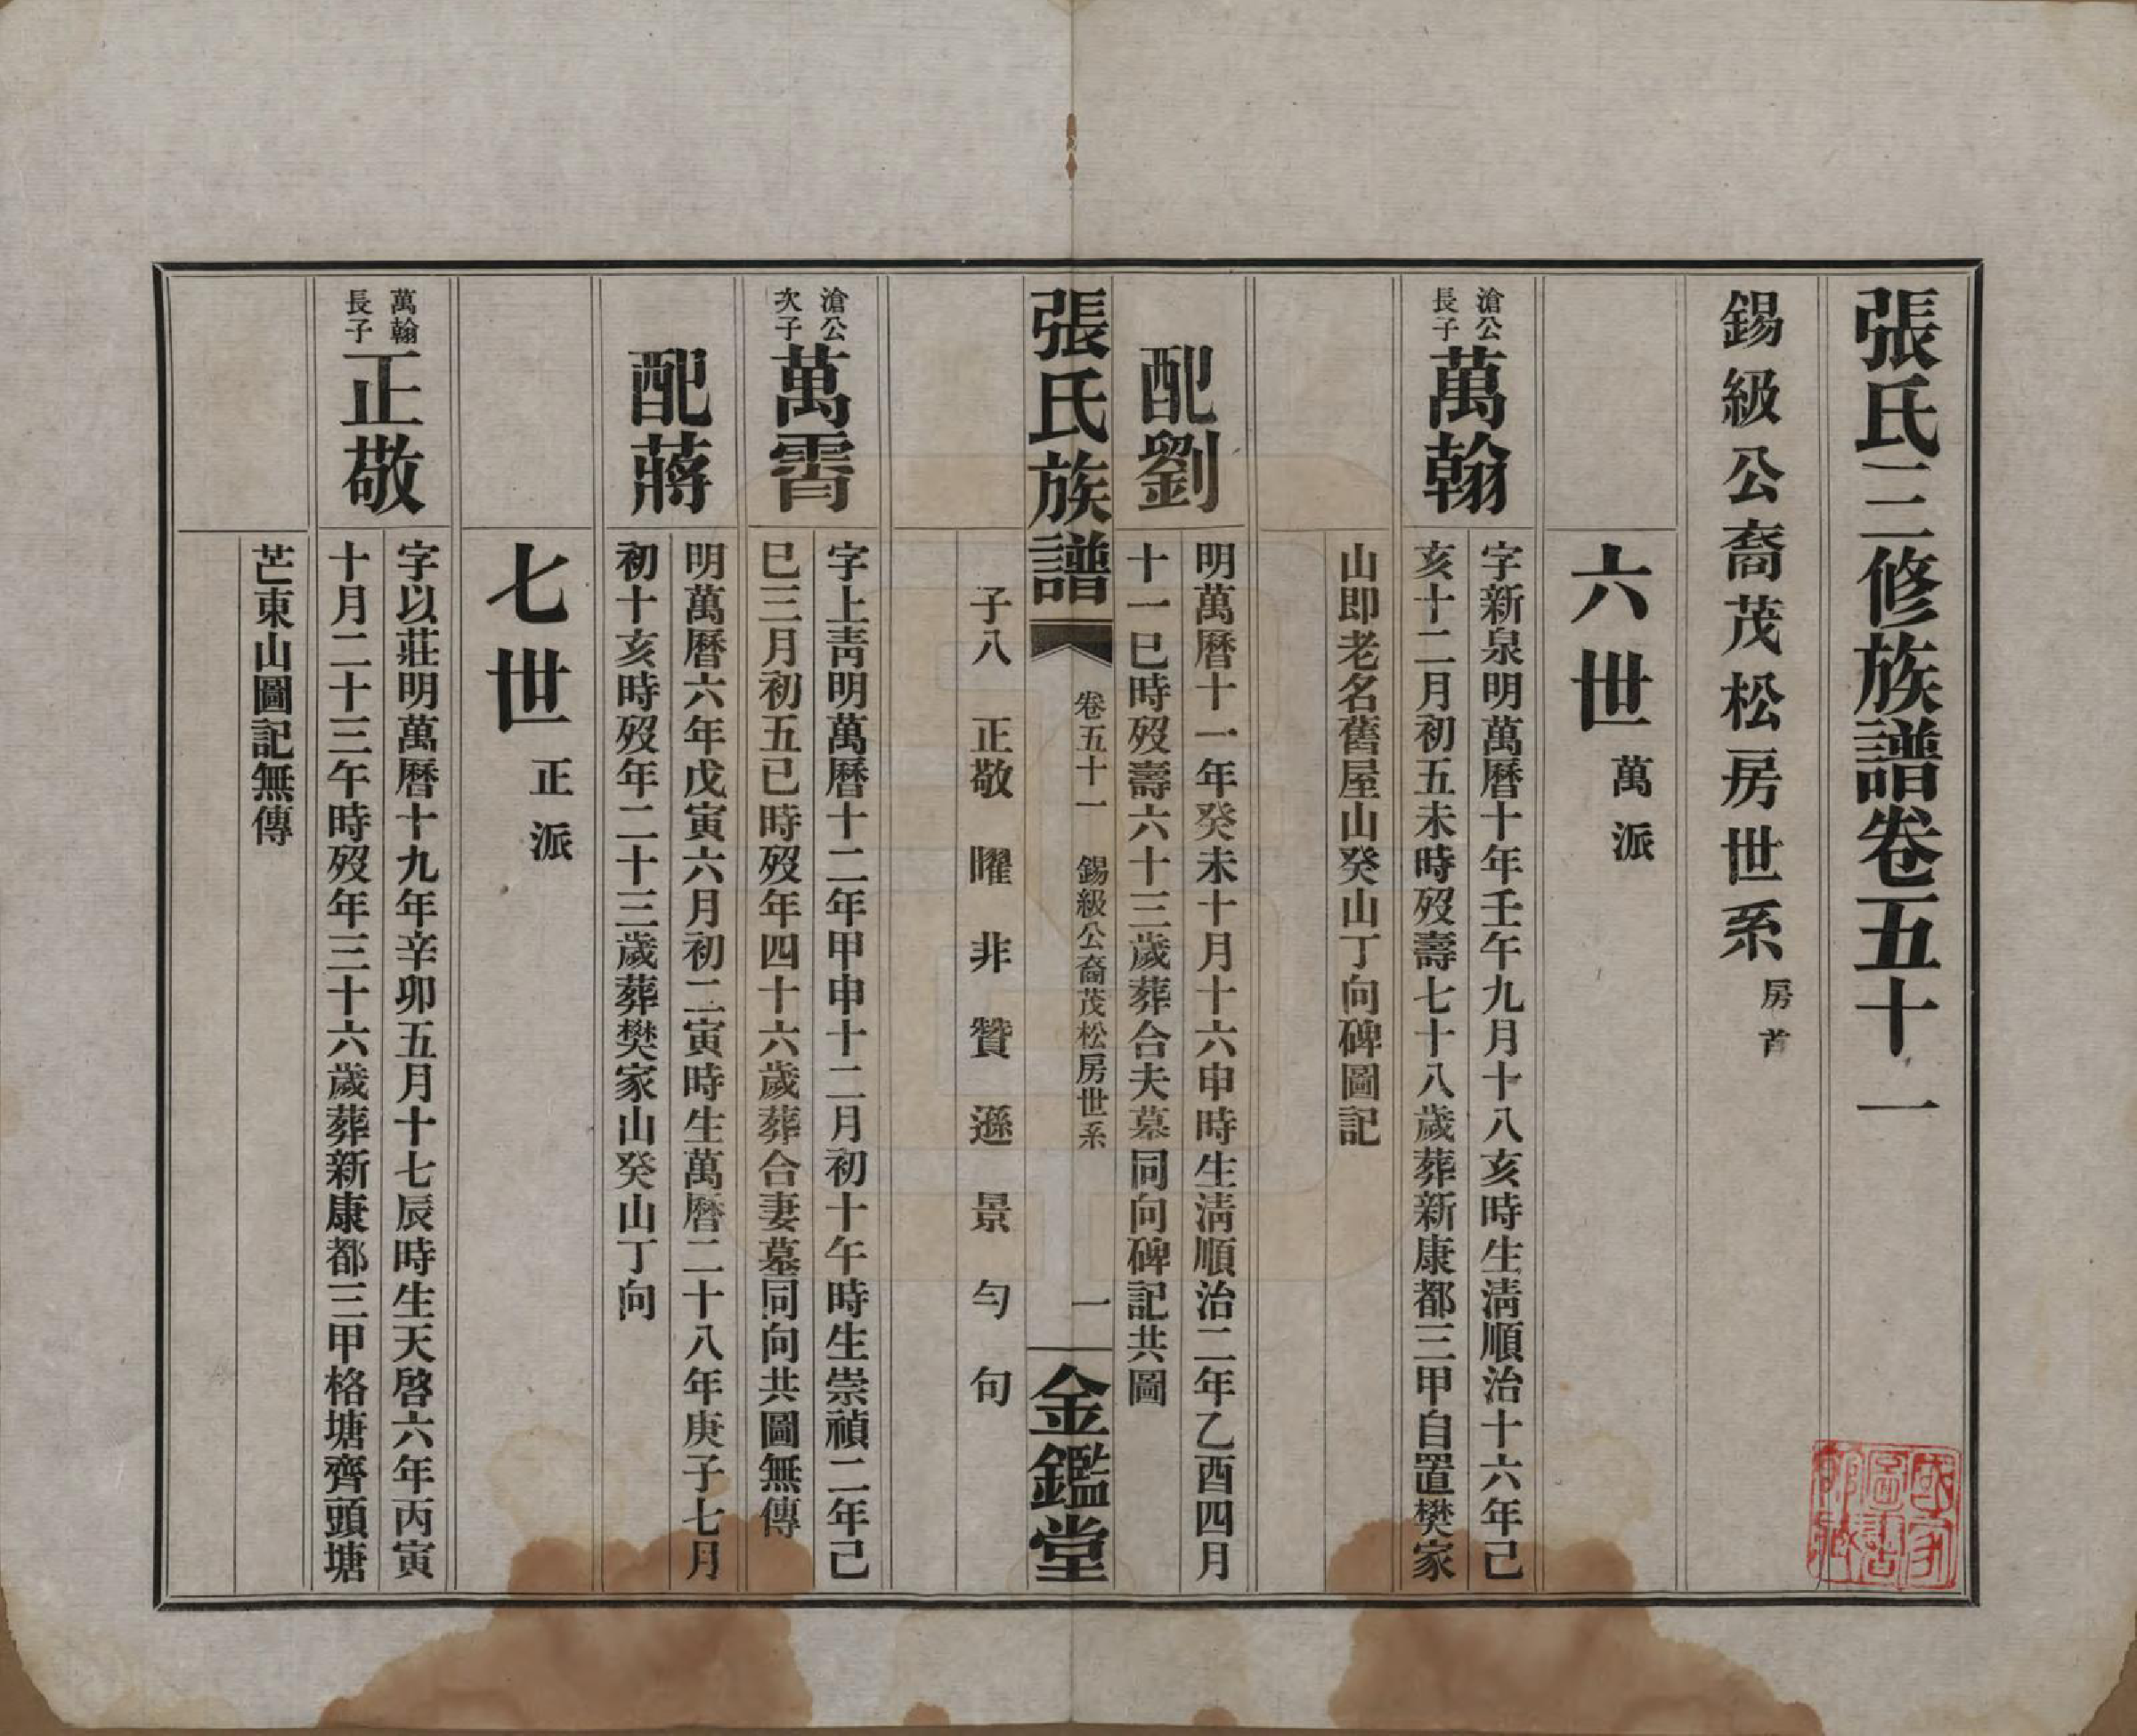 張氏三修族譜卷五十一
錫級公裔茂松房世系 房首
六世 萬派
滄公長子
萬翰
字新泉明萬曆十年壬午九月十八亥時生淸順治十六年己
亥十二月初五未時歿壽七十八歲葬新康都三甲自置樊家
山即老名舊屋山癸山丁向碑圖記
配劉
明萬曆十一年癸未十月十六申時生淸順治二年乙酉四月
十一巳時歿壽六十三歲葬合夫墓同向碑記共圖
張氏族譜
卷五十一 錫級公裔茂松房世系
一
金鑑堂
子八 正敬 曜 非 贊 遜 景 勻 句
滄公次子
萬霄
字上靑明萬曆十二年甲申十二月初十午時生崇禎二年己
巳三月初五巳時歿年四十六歲葬合妻墓同向共圖無傳
配蔣
明萬曆六年戊寅六月初二寅時生萬曆二十八年庚子七月
初十亥時歿年二十三歲葬樊家山癸山丁向
七世 正派
萬翰長子
正敬
字以莊明萬曆十九年辛卯五月十七辰時生天啓六年丙寅
十月二十三午時歿年三十六歲葬新康都三甲格塘齊頭塘
芒東山圖記無傳
國家圖書館藏